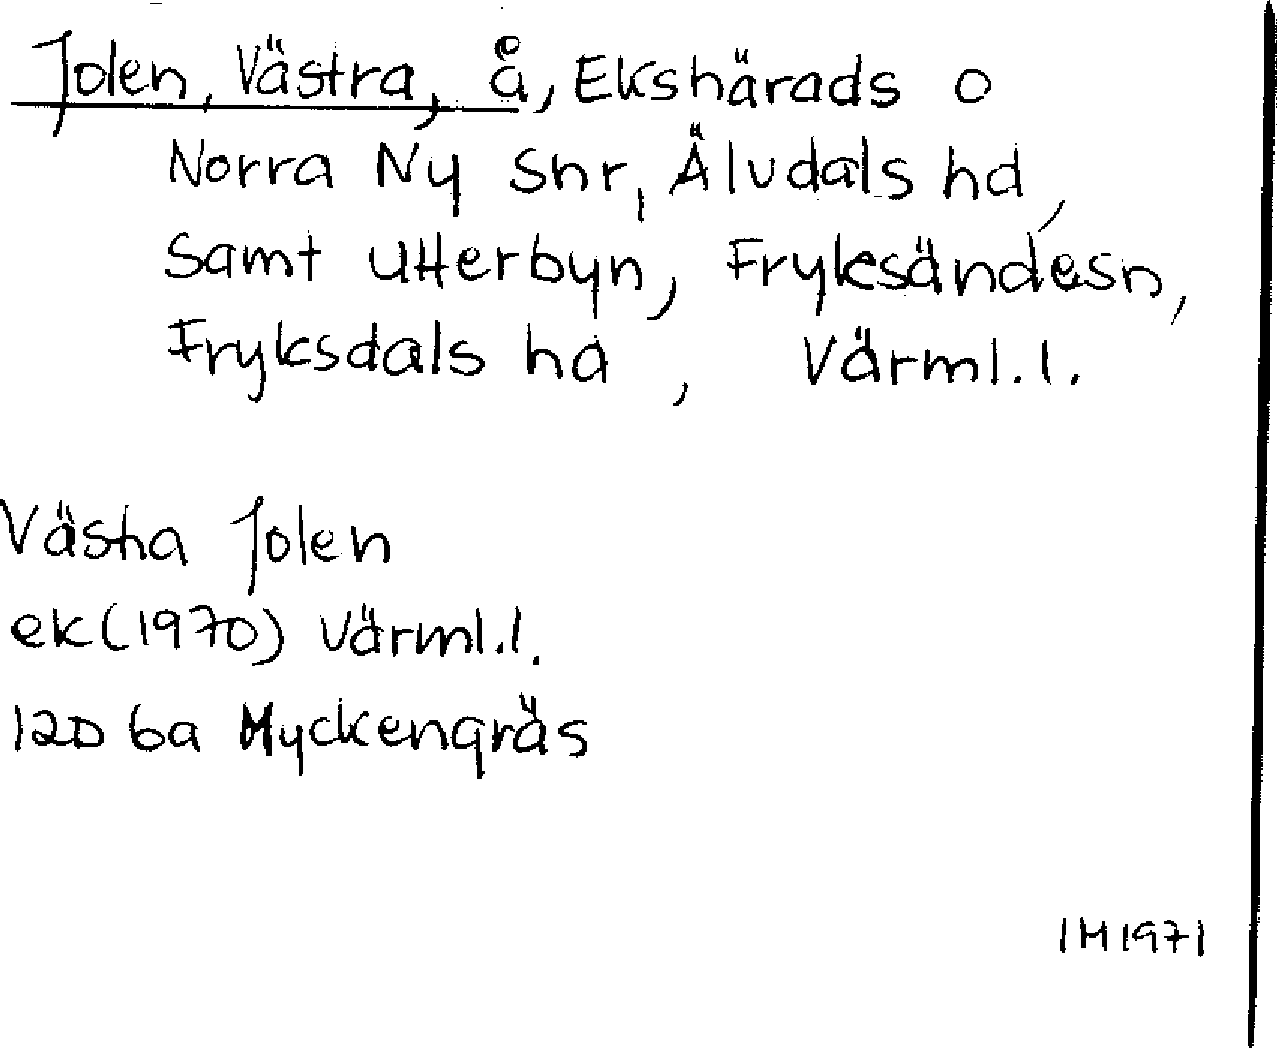 Jolen, Västra, å, Ekshärads o
Norra Ny snr, Älvdals hd,
samt Utterbyn, Fryksände sn,
Fryksdals hd, Värml. l.
Västra Jolen
ek (1970) Värml. l.
12D 6a Myckengräs
IH 1971